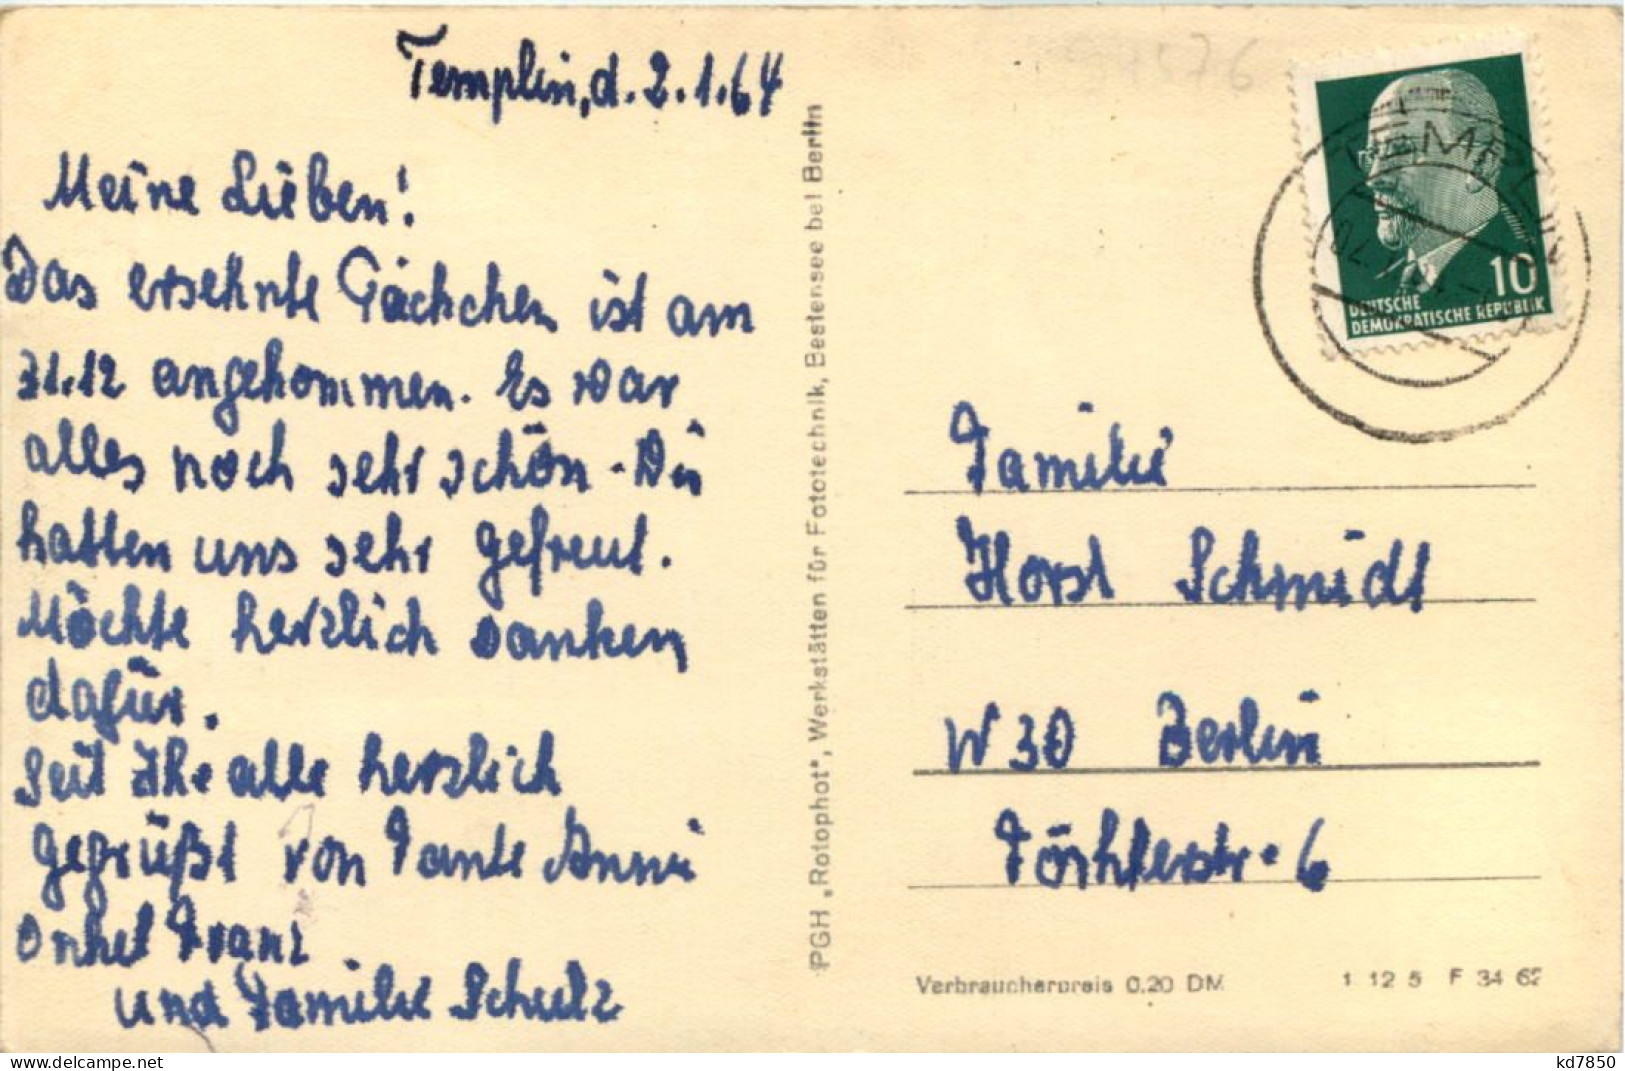 Templin, d. 2.1.64
Meine Lieben!
Das ersehnte Päckchen ist am
31.12 angekommen. Es war
alles noch sehr schön. Wir
hatten uns sehr gefreut.
Möchte herzlich danken
dafür.
Seit Ihr alle herzlich
gegrüßt von Tante Anni
Onkel Franz
und Familie Schulz
PGH „Rotophot“, Werkstätten für Fototechnik, Bestensee bei Berlin
94576
TEMPLIN
10
DEUTSCHE
DEMOKRATISCHE REPUBLIK
Familie
Horst Schmidt
W 30 Berlin
6
Verbraucherpreis 0,20 DM
1 12 5 F 34 62
delcampe.net
kd7850